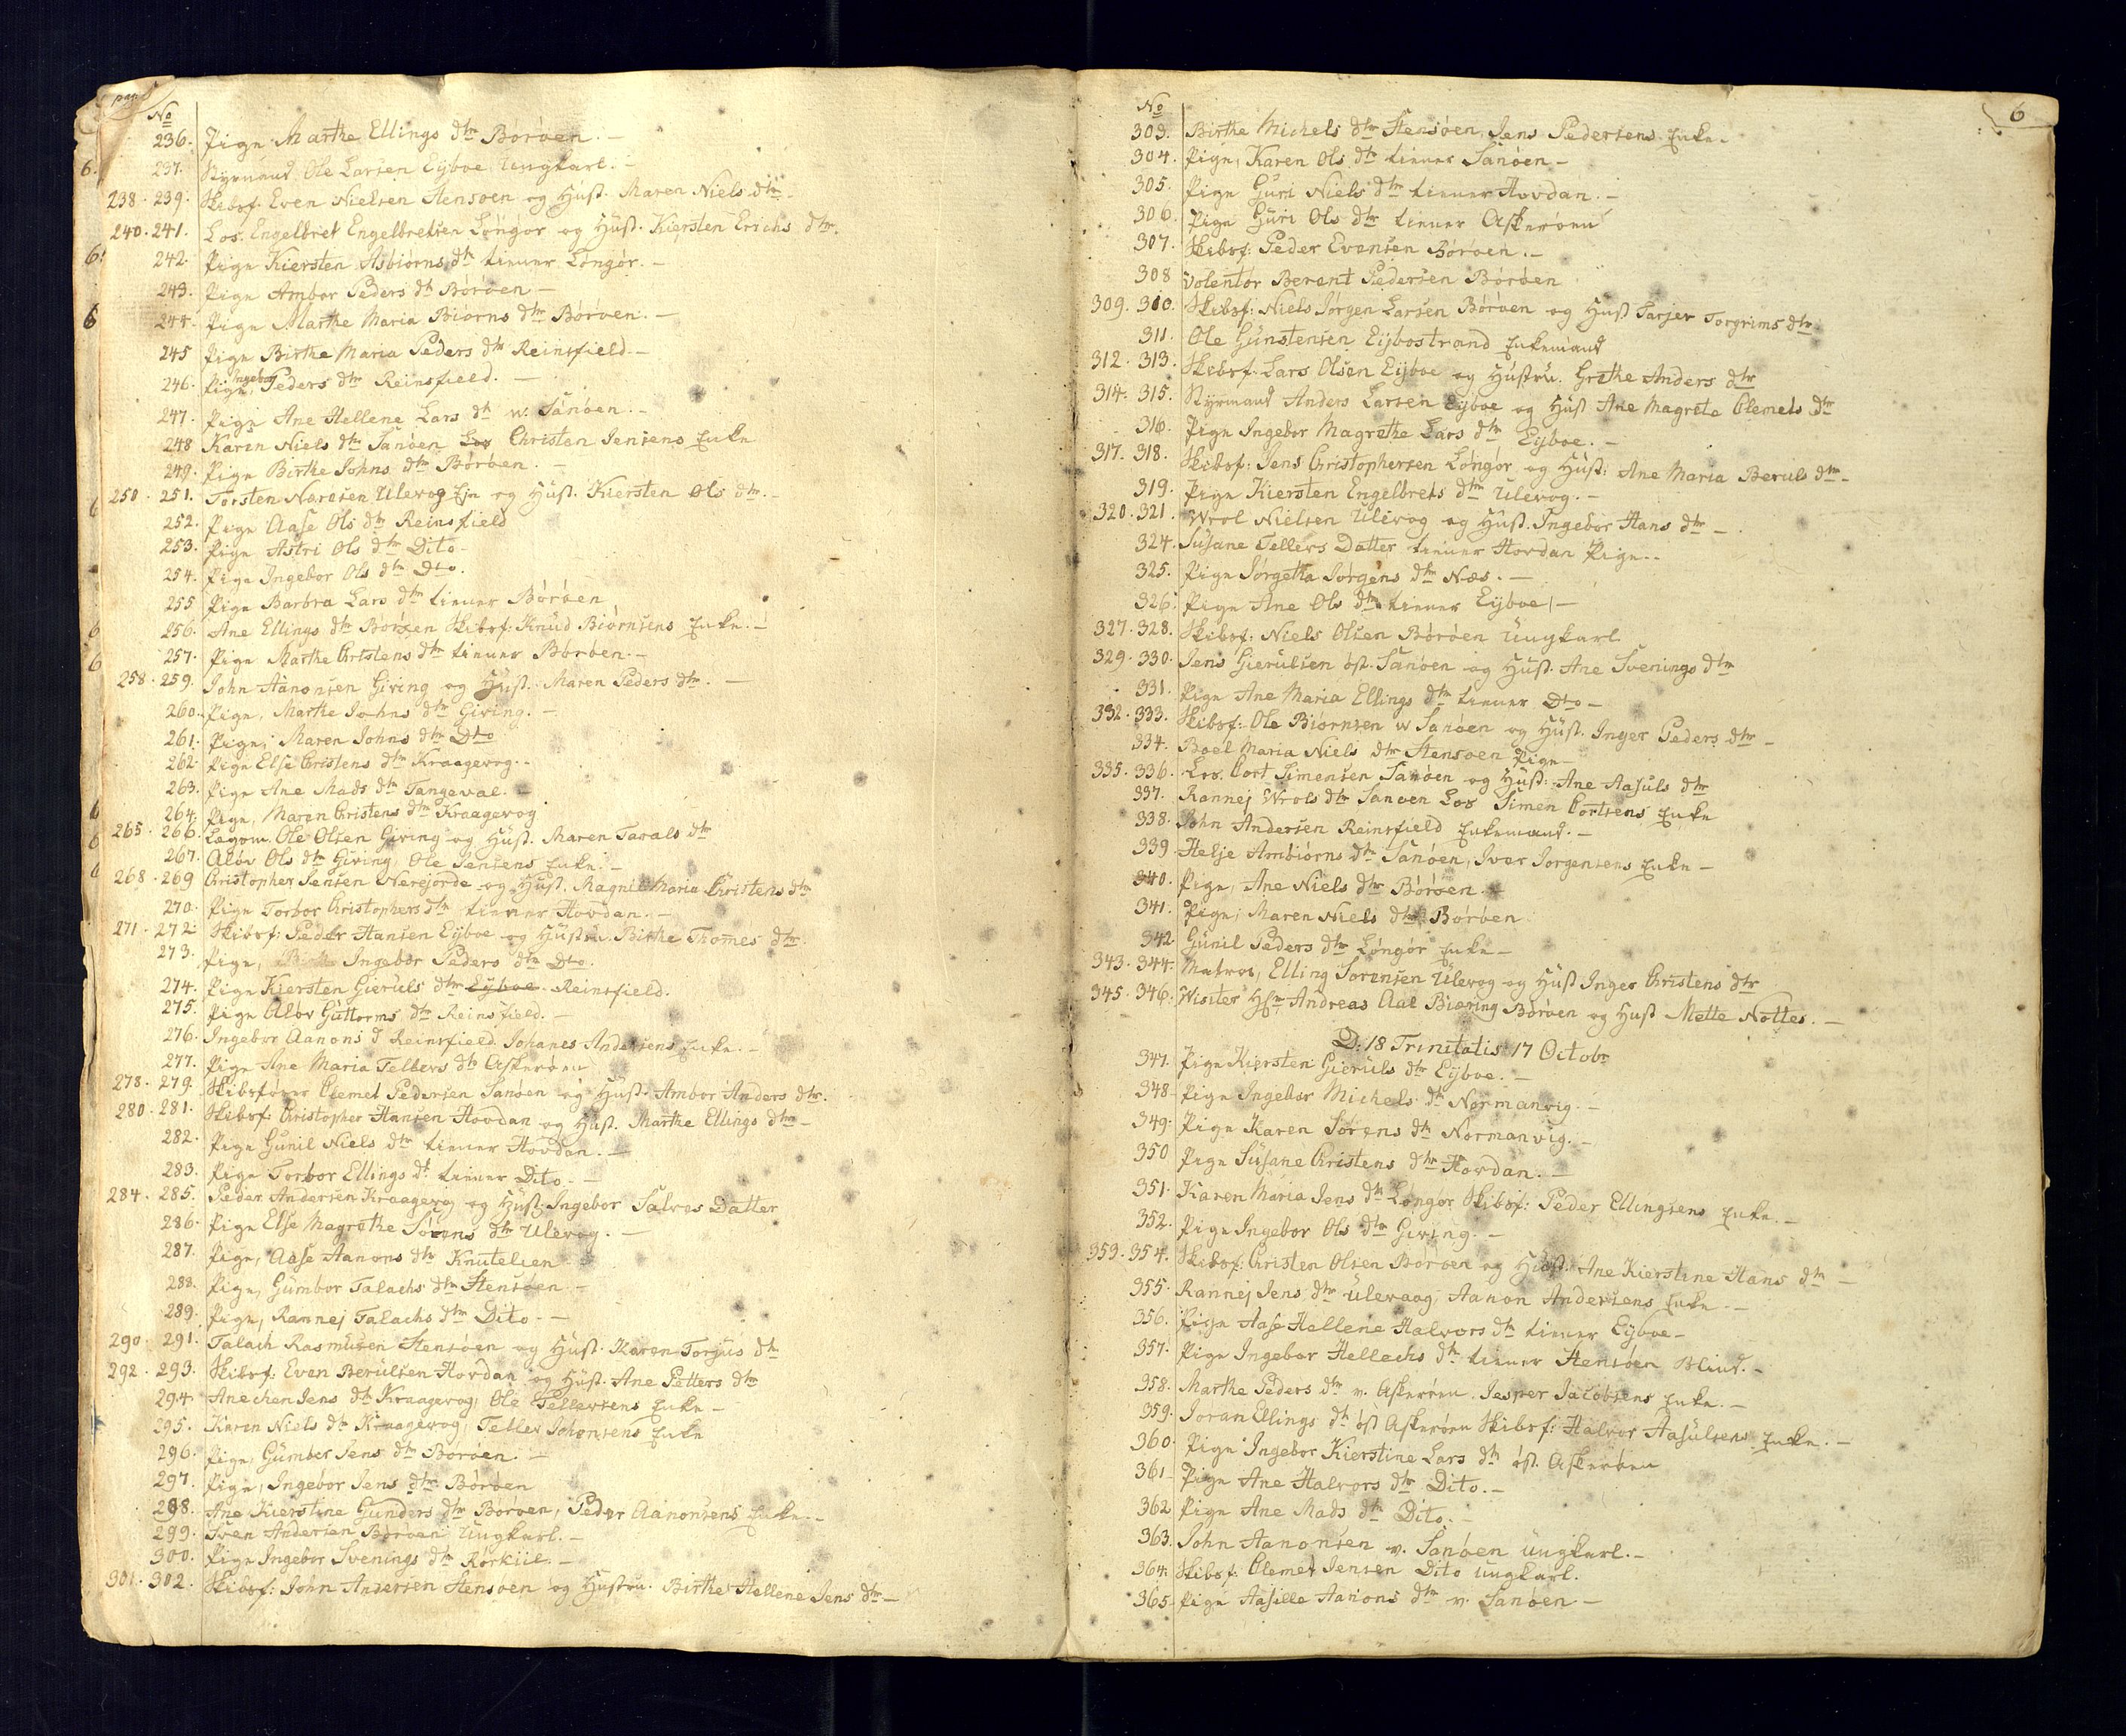 pag
No
236. Pige Marthe Ellings dtr Böröen. –
6. 237. Styrmand Ole Larsen Eijboe Ungkarl. –
238. 239. Skibsf. Even Nielsen Stensöen og Hust. Maren Niels dtr –
240. 241. Los. Engelbret Engelbretsen Löngör og Hust. Kiersten Erichs dtr.
6. 242. Pige Kiersten Asbiörns dtr tiener Löngör. –
243. Pige Ambor Peders dtr Böröen –
6 244. Pige Marthe Maria Biörns dtr Böröen. –
245 Pige Birthe Maria Peders dtr Reinsfield –
246. Pige, Ingebor Peders dtr Reinsfield. –
247. Pige Ane Hellene Lars dtr w. Sanöen. –
248 Karen Niels dtr Sanöen Los Christen Jensens Enke
249. Pige Birthe Johns dtr Böröen. –
6 250. 251. Torsten Naresen Ulevog Eje og Hust. Kiersten Ols dtr. –
252. Pige Aase Ols dtr Reinsfield
253. Pige Astri Ols dtr Dito
254. Pige Ingebor Ols dtr Dto.
255 Pige Barbra Lars dtr tiener Böröen
6 256. Ane Ellings dtr Böröen Skibsf: Knud Biörnsens Enke. –
6 257. Pige Marthe Christens dtr tiener Böröen. –
258. 259. John Aanonsen Giving og Hust. Maren Peders dtr. –
260. Pige, Marthe Johns dtr Giving. –
261. Pige, Maren Johns dtr Dto
262. Pige Else Christens dtr Kraagevog. –
263. Pige Ane Mads dtr Tangeval. –
6 264. Pige, Maren Christens dtr Kraagevog
6 265. 266. Lagom. Ole Olsen Giving og Hust. Maren Tarals dtr
6 267. Alöv Ols dtr Giving, Ole Jensens Enke. –
268. 269 Christopher Jensen Nerejorde og Hust. Magnil Maria Christens dtr
270. Pige Torbor Christophers dtr tiener Hovdan. –
271. 272. Skibsf: Peder Hansen Eijboe og Hustru. Birthe Thomes dtr.
273. Pige, Ingebor Peders dtr Dto.
274. Pige Kiersten Gieruls dtr Eijboe Reinsfield.
275. Pige Alöv Guttorms dtr Reinsfield. –
276. Ingebor Aanons d Reinsfield. Johanes Andersens Enke. –
277. Pige Ane Maria Tellers dtr Askeröen
278. 279. Skibsförer Clemet Pedersen Sanöen og Hust. Ambor Anders dtr.
280. 281. Skibsf: Christopher Hansen Hovdan og Hust. Marthe Ellings dtr –
282. Pige Gunil Niels dtr tiener Hovdan. –
283. Pige Torbor Ellings d. tiener Dito. –
284. 285. Peder Andersen Kraagevog og Hust. Ingebor Salves Datter
286. Pige Else Magrethe Sörens dtr Ulevog. –
287. Pige, Aase Aanons dtr Knutelien
288. Pige, Gumbor Talachs dtr Stensöen. –
289. Pige, Rannej Talachs dtr Dito –
290. 291. Talach Rasmusen Stensöen og Hust. Karen Torjus dtr
292. 293. Skibsf: Even Berulsen Hovdan og Hust. Ane Petters dtr
294. Anechen Jens dtr Kraagevog, Ole Tellersens Enke –
295. Karen Niels dtr Kraagevog, Teller Johansens Enke
296. Pige, Gumber Jens dtr Böröen. –
297. Pige, Ingebor Jens dtr Böröen
298. Ane Kierstine Gunders dtr Böröen, Peder Aanonsens Enke. –
299. Sven Andersen Böröen Ungkarl. –
300. Pige Ingebor Svenings dtr Rörkiil. –
301. 302. Skibsf: John Andersen Stensöen og Hustru. Birthe Hellene Jens dtr –
6
No
303. Birthe Michels dtr Stensöen, Jens Pedersens Enke –
304. Pige, Karen Ols dtr tiener Sanöen –
305. Pige Guri Niels dtr tiener Hovdan. –
306. Pige Guri Ols dtr tiener Askeröen
307. Skibsf: Peder Evensen Böröen. –
308 Volentör Berent Pedersen Böröen
309. 310. Skibsf: Niels Jörgen Larsen Böröen og Hust Tarjer Torgrims dtr
311. Ole Gunstensen Eijbostrand Enkemand
312. 313. Skibsf. Lars Olsen Eijboe og Hustru. Grethe Anders dtr
314. 315. Styrmand Anders Larsen Eijboe og Hust Ane Magrete Clemets dtr
316. Pige Ingebor Magrethe Lars dtr Eijboe. –
317. 318. Skibsf: Jens Christophersen Löngör og Hust: Ane Maria Beruls dtr –
319. Pige Kiersten Engelbrets dtr Ulevog. –
320. 321. Wrol Nielsen Ulevog og Hust. Ingebor Hans dtr –
324. Susane Tellers Datter tiener Hovdan Pige. –
325. Pige Jörgetha Jörgens dtr Næs. –
326. Pige Ane Ols dtr tiener Eijboe –
327. 328. Skibsf: Niels Olsen Böröen Ungkarl
329. 330. Jens Gierulsen öst. Sanöen og Hust. Ane Svenings dtr
331. Pige Ane Maria Ellings dtr tiener Dto –
332. 333. Skibsf: Ole Biörnsen w Sanöen og Hust. Inger Peders dtr –
334. Boel Maria Niels dtr Stensöen Pige –
335. 336. Los. Cort Simensen Sanöen og Hust: Ane Aasuls dtr
337. Rannej Wrols dtr Sanöen Los Simen Cortsens Enke
338. John Andersen Reinsfield Enkemand. –
339 Helje Ambiörns dtr Sanöen, Iver Jörgensens Enke –
340. Pige, Ane Niels dtr Böröen. –
341. Pige, Maren Niels dtr Böröen
342. Gunil Peders dtr Löngör Enke –
343. 344. Matros, Elling Sörensen Ulevog og Hust Inger Christens dtr
345. 346. Wisiter Hr Andreas Aal Biæring Böröen og Hust Mette Noltes. –
D: 18 Trinitatis 17 Octobr
347. Pige Kiersten Gieruls dtr Eijboe. –
348. Pige Ingebor Michels dtr Normanvig. –
349. Pige Karen Sörens dtr Normanvig. –
350 Pige Susane Christens dtr Hovdan. –
351. Karen Maria Jens dtr Löngör Skibsf: Peder Ellingsens Enke. –
352. Pige Ingebor Ols dtr Giving. –
353. 354. Skibsf: Christen Olsen Böröen og Hust: Ane Kierstine Hans dtr –
355. Rannej Jens dtr Ulevaag, Aanon Andersens Enke. –
356. Pige Aase Hellene Halvors dtr tiener Eijboe –
357. Pige Ingebor Hellechs dtr tiener Stensöen Blind. –
358. Marthe Peders dtr v. Askeröen. Jesper Jacobsens Enke. –
359. Joran Ellings dtr öst Askeröen Skibsf: Halvor Aasulsens Enke. –
360. Pige Ingebor Kierstine Lars dtr öst. Askeröen
361. Pige Ane Halvors dtr Dito. –
362 Pige Ane Mads dtr Dito. –
363. John Aanonsen v. Sanöen Ungkarl. –
364. Skibsf: Clemet Jensen Dito Ungkarl.
365. Pige Aasille Aanons dtr v. Sanöen –